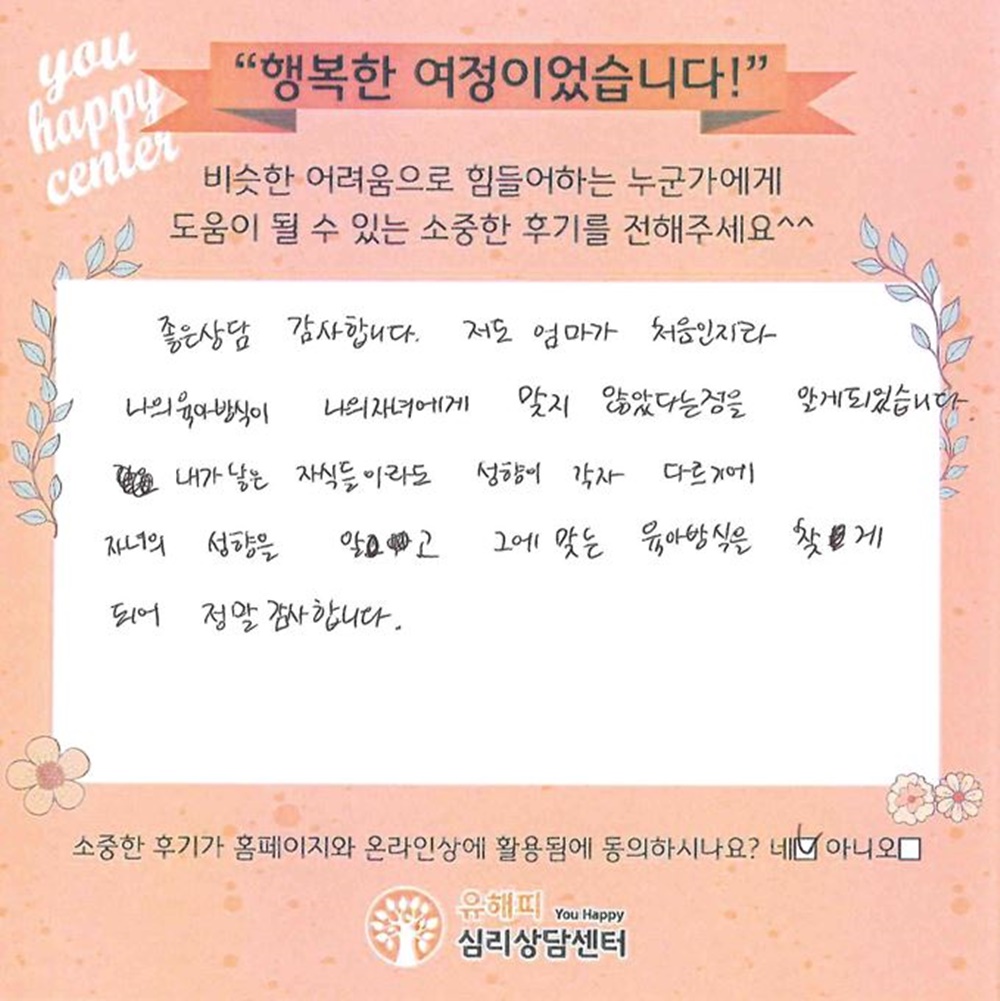 you
happy
center
“행복한 여정이었습니다!”
비슷한 어려움으로 힘들어하는 누군가에게
도움이 될 수 있는 소중한 후기를 전해주세요^^
좋은상담 감사합니다. 저도 엄마가 처음인지라
나의육아방식이 나의자녀에게 맞지 않았다는점을 알게되었습니다.
내가 낳은 자식들이라도 성향이 각자 다르기에
자녀의 성향을 알고 그에 맞는 육아방식을 찾게
되어 정말 감사합니다.
소중한 후기가 홈페이지와 온라인상에 활용됨에 동의하시나요? 네☑ 아니오☐
유해피 You Happy
심리상담센터